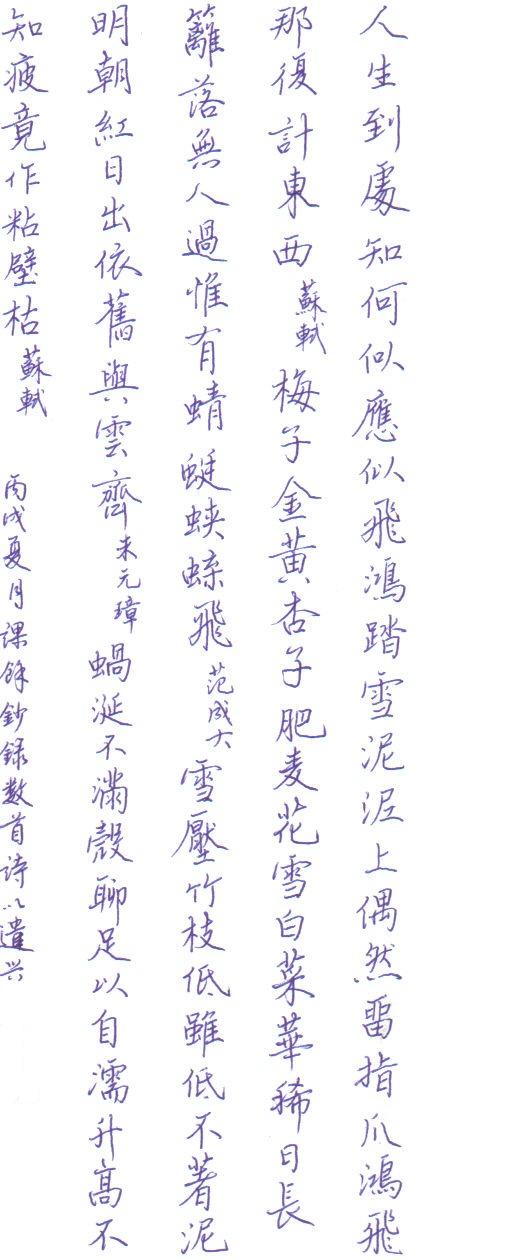 人生到處知何似應似飛鴻踏雪泥泥上偶然畱指爪鴻飛
那復計東西蘇軾梅子金黃杏子肥麦花雪白菜華稀日長
籬落無人過惟有蜻蜓蛱蝶飛范成大雪壓竹枝低雖低不著泥
明朝紅日出依舊與雲齊朱元璋蝸涎不滿殼聊足以自濡升高不
知疲竟作粘壁枯蘇軾
丙戌夏月課餘鈔録数首诗以遣兴